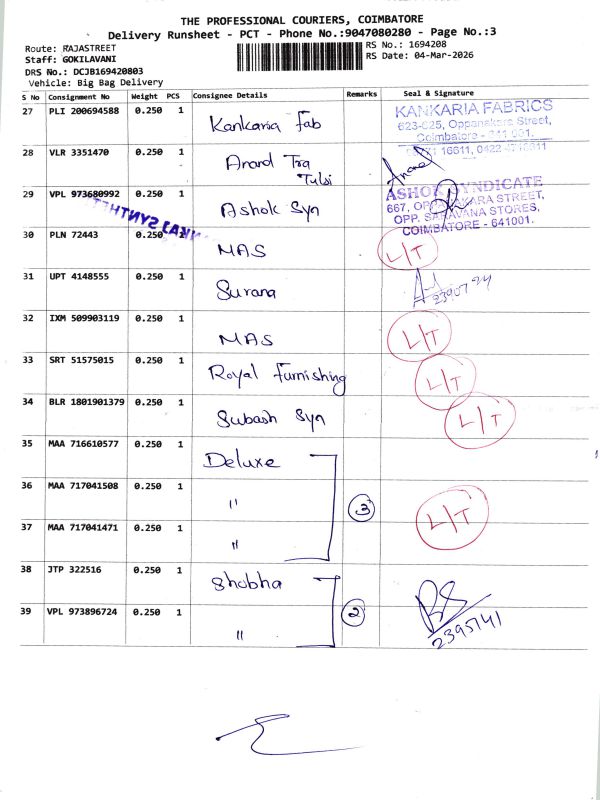 THE PROFESSIONAL COURIERS, COIMBATORE
Delivery Runsheet - PCT - Phone No.:9047080280 - Page No.:3
Route: RAJASTREET
RS No.: 1694208
Staff: GOKILAVANI
RS Date: 04-Mar-2026
DRS No.: DCJB169420803
Vehicle: Big Bag Delivery
S No Consignment No Weight PCS Consignee Details Remarks Seal & Signature
27 PLI 200694588 0.250 1 Kankaria Fab
KANKARIA FABRICS
623-625, Oppanakara Street,
Coimbatore - 641 001.
28 VLR 3351470 0.250 1 Anand Tra
Tulsi
Anand
29 VPL 973680992 0.250 1 Ashok Syn
ASHOK SYNDICATE
667, OPPANAKARA STREET,
OPP. SARAVANA STORES,
COIMBATORE - 641001.
30 PLN 72443 0.250 1 MAS L/T
31 UPT 4148555 0.250 1 Surana
32 IXM 509903119 0.250 1 MAS L/T
33 SRT 51575015 0.250 1 Royal Furnishing L/T
34 BLR 1801901379 0.250 1 Subash Syn L/T
35 MAA 716610577 0.250 1 Deluxe
36 MAA 717041508 0.250 1 " 3 L/T
37 MAA 717041471 0.250 1 "
38 JTP 322516 0.250 1 Shobha
39 VPL 973896724 0.250 1 " 2
2395141